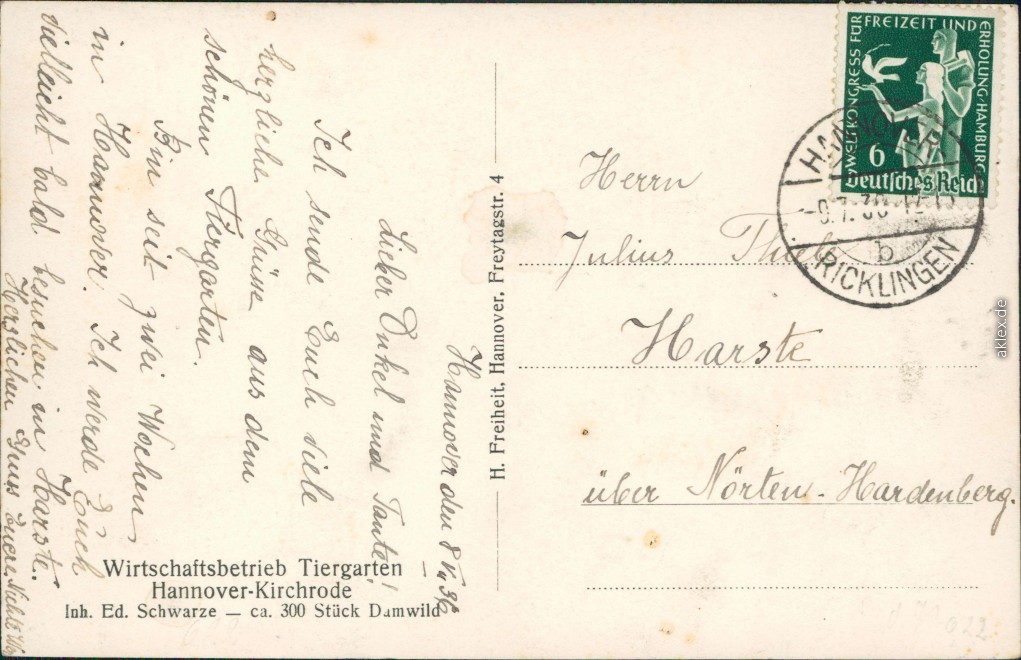 Hannover den 8.V.36
Lieber Onkel und Tante!
Ich sende Euch viele
herzliche Grüsse aus dem
schönen Tiergarten.
Bin seit zwei Wochen
in Hannover. Ich werde Euch
vielleicht bald besuchen in Harste.
Herzlichen Gruss Euere Nichte
Wirtschaftsbetrieb Tiergarten
Hannover-Kirchrode
Inh. Ed. Schwarze — ca. 300 Stück Damwild
H. Freiheit, Hannover, Freytagstr. 4
WELTKONGRESS FÜR FREIZEIT UND ERHOLUNG·HAMBURG
6
Deutsches Reich
HANNOVER
b
RICKLINGEN
Herrn
Julius
Harste
über Nörten-Hardenberg.
aklex.de